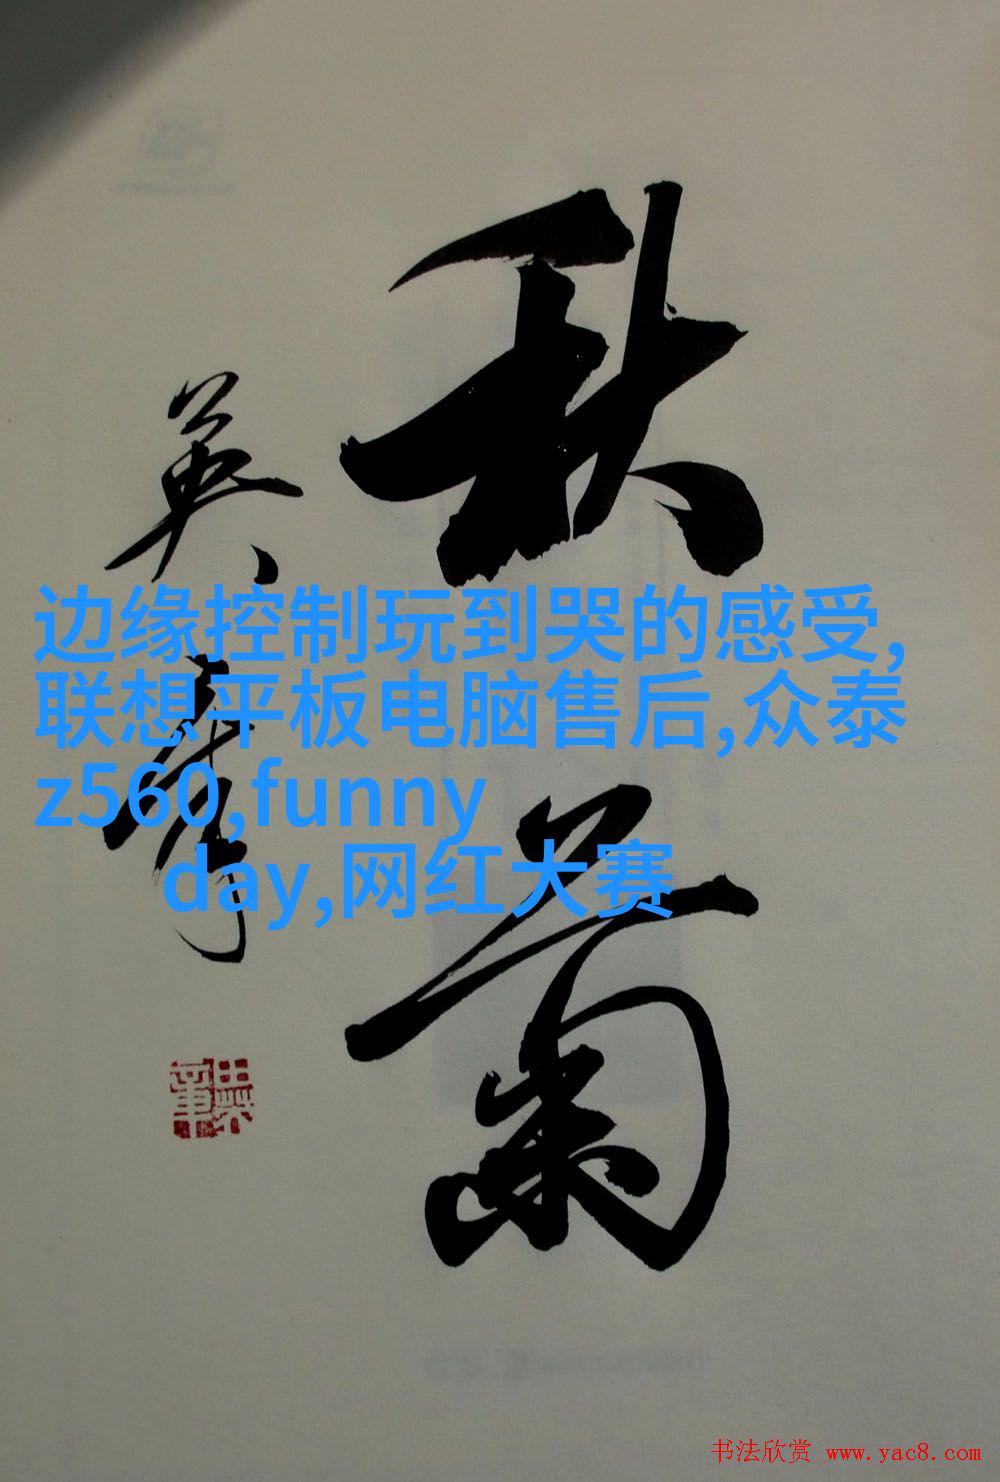 秋菊
英章
边缘控制玩到哭的感受,
联想平板电脑售后,众泰
z560,funny
day,网红大赛
书法欣赏 www.yac8.com